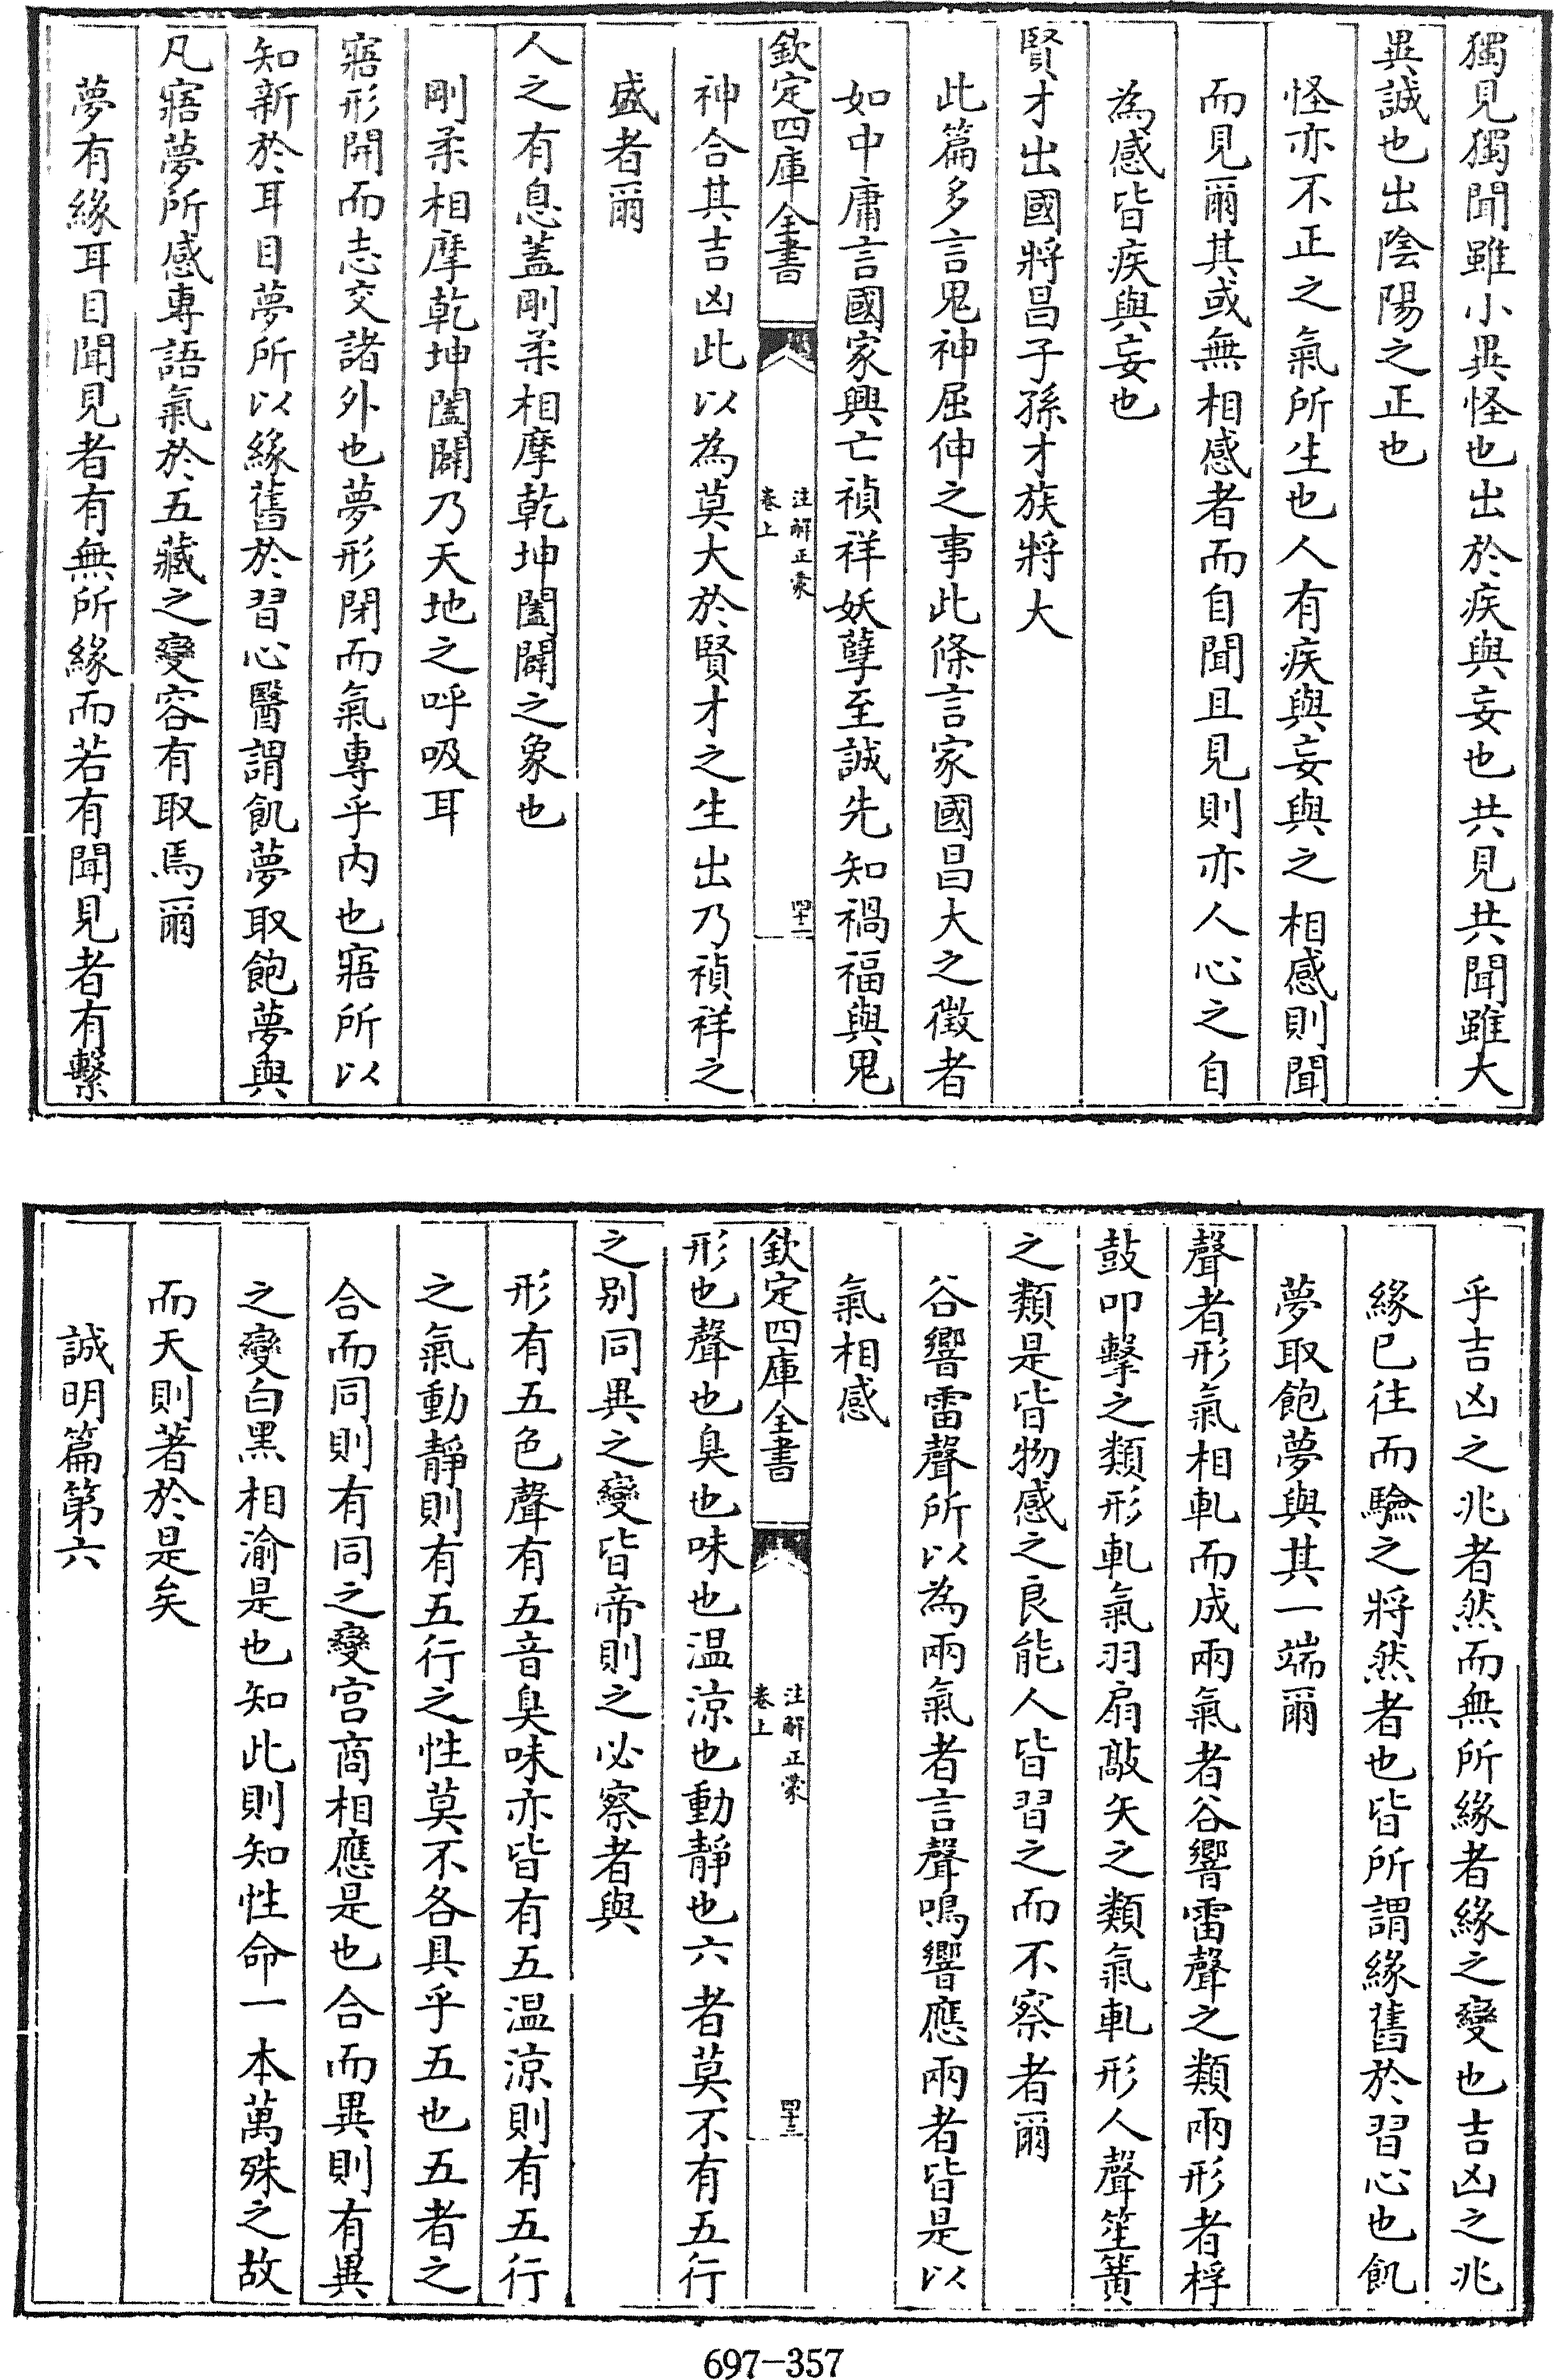 獨見獨聞雖小異怪也出於疾與妄也共見共聞雖大
異誠也出陰陽之正也
怪亦不正之氣所生也人有疾與妄與之相感則聞
而見爾其或無相感者而自聞且見則亦人心之自
為感皆疾與妄也
賢才出國將昌子孫才族將大
此篇多言鬼神屈伸之事此條言家國昌大之徵者
如中庸言國家興亡禎祥妖孽至誠先知禍福與鬼
欽定四庫全書
注解正蒙
卷上
四十二
神合其吉凶此以為莫大於賢才之生出乃禎祥之
盛者爾
人之有息蓋剛柔相摩乾坤闔闢之象也
剛柔相摩乾坤闔闢乃天地之呼吸耳
寤形開而志交諸外也夢形閉而氣專乎內也寤所以
知新於耳目夢所以緣舊於習心醫謂飢夢取飽夢與
凡寤夢所感專語氣於五藏之變容有取焉爾
夢有緣耳目聞見者有無所緣而若有聞見者有繫
乎吉凶之兆者然而無所緣者緣之變也吉凶之兆
緣已往而驗之將然者也皆所謂緣舊於習心也飢
夢取飽夢與其一端爾
聲者形氣相軋而成兩氣者谷響雷聲之類兩形者桴
鼓叩擊之類形軋氣羽扇敲矢之類氣軋形人聲笙簧
之類是皆物感之良能人皆習之而不察者爾
谷響雷聲所以為兩氣者言聲鳴響應兩者皆是以
氣相感
欽定四庫全書
注解正蒙
卷上
四十三
形也聲也臭也味也温涼也動靜也六者莫不有五行
之别同異之變皆帝則之必察者與
形有五色聲有五音臭味亦皆有五温涼則有五行
之氣動靜則有五行之性莫不各具乎五也五者之
合而同則有同之變宫商相應是也合而異則有異
之變白黑相渝是也知此則知性命一本萬殊之故
而天則著於是矣
誠明篇第六
697-357